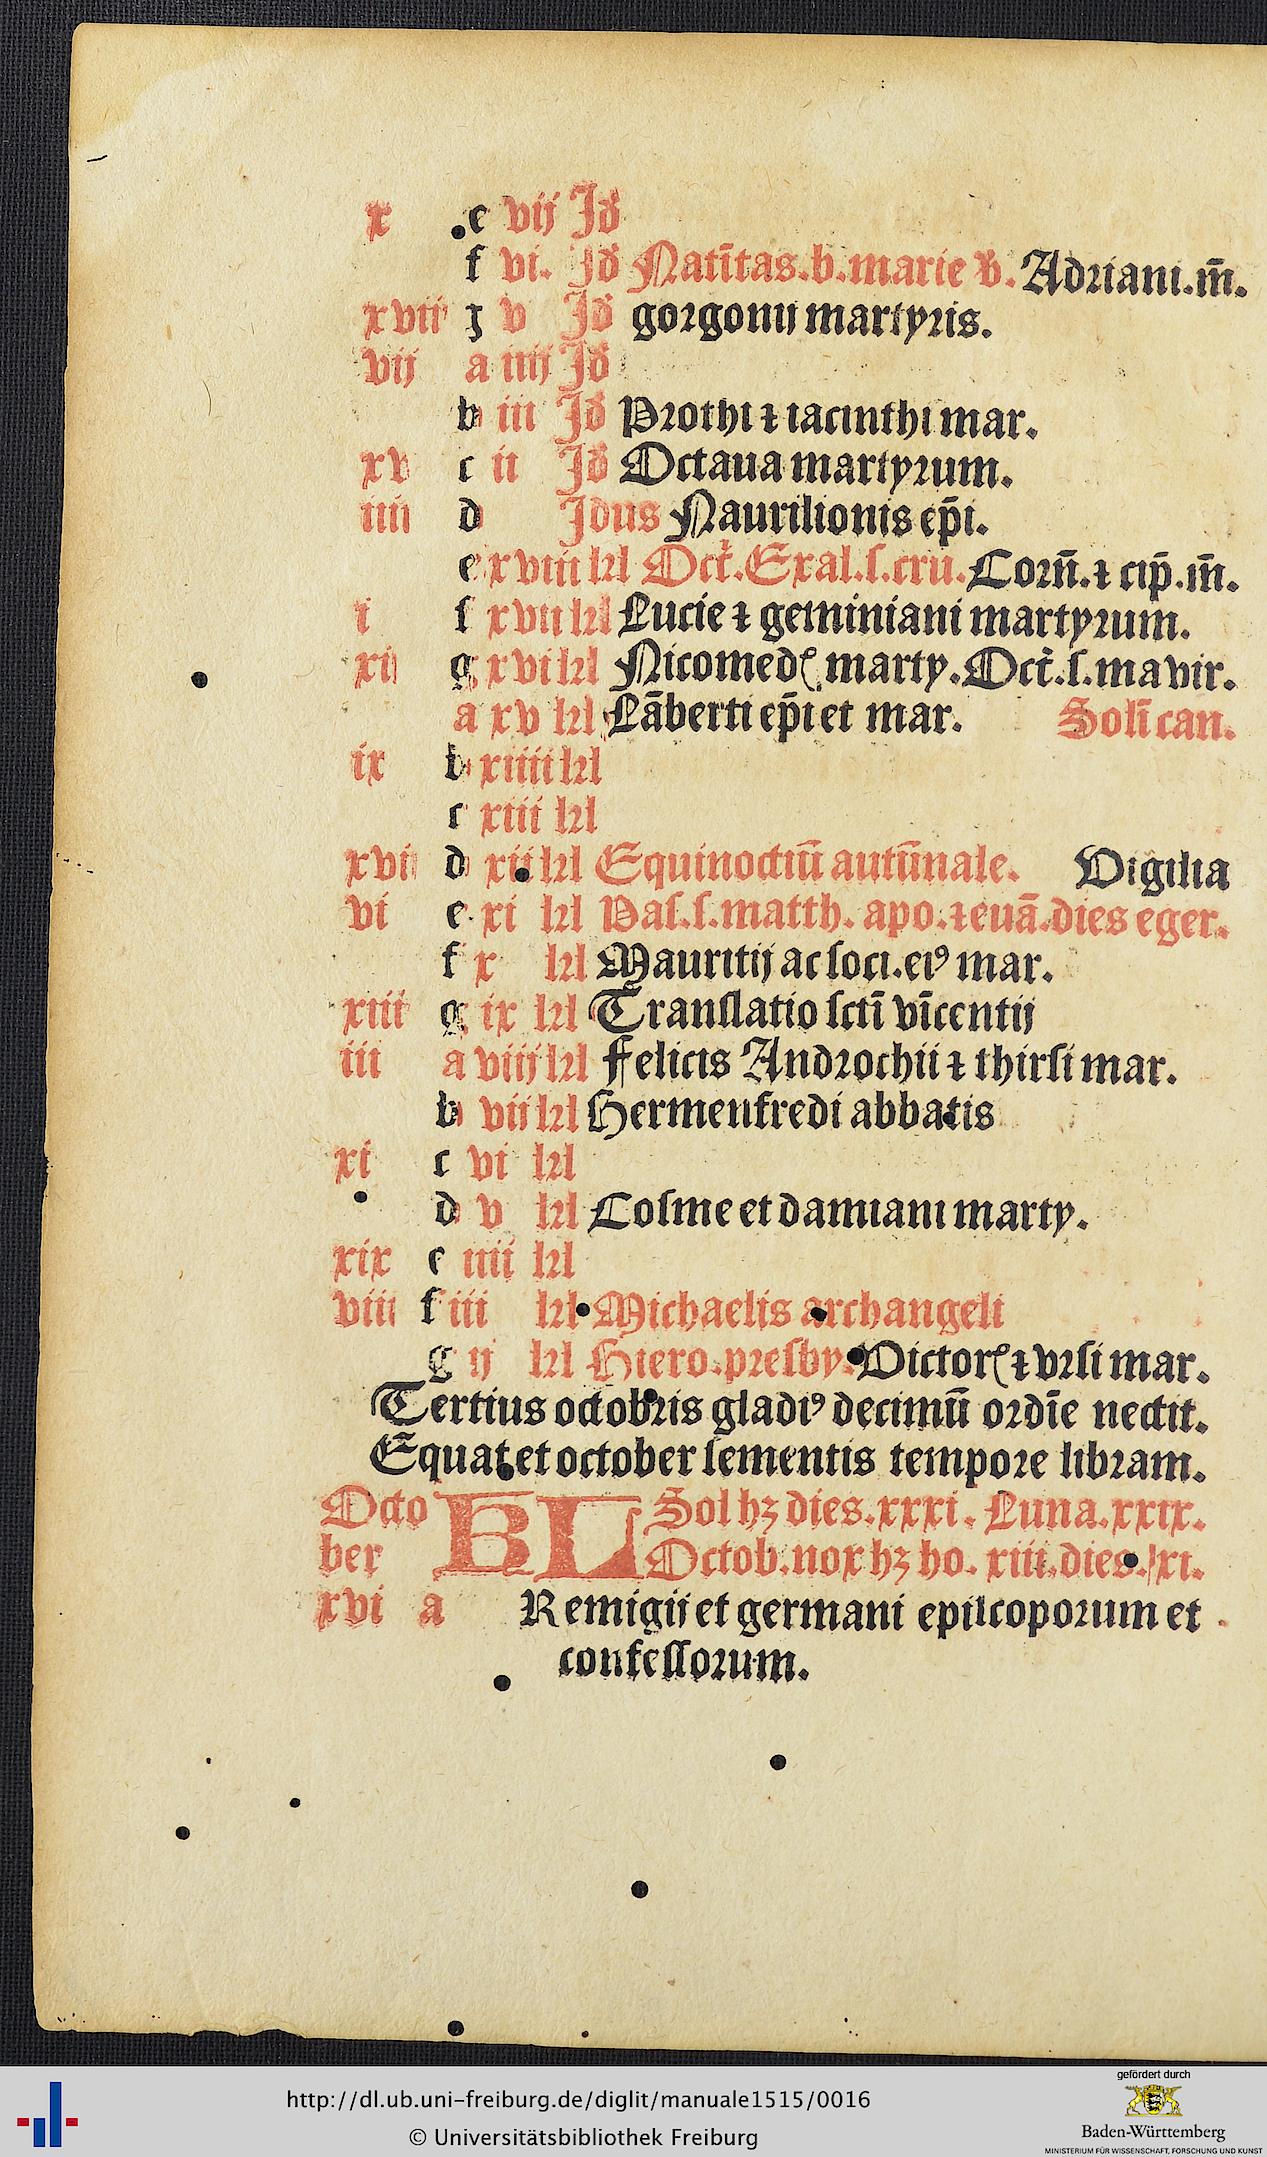 x e vij Jd̄
f vi. Jd̄ Natītas.b.marie v̄. Adriani.m̄.
xvii ȝ v Jd̄ gorgonij martyris.
vij a iiij Jd̄
b iii Jd̄ Prothi ⁊ iacinthi mar.
xv c ii Jd̄ Octaua martyrum.
iiii d Jdus Naurilionis ep̄i.
e xviii kl Oct̄.Exal.ſ.cru.Corn̄.⁊ cip̄.m̄.
i f xvii kl Lucie ⁊ geminiani martyrum.
xii g xvi kl Nicomedꝭ marty.Oct̄.ſ.ma vir.
a xv kl Lāberti ep̄i et mar. Solī can.
ix b xiiii kl
c xiii kl
xvii d xii kl Equinoctiū autūnale. Vigilia
vi e xi kl Paſ.ſ.matth. apo.⁊euā.dies eger.
f x kl Mauritij ac ſoci.eiꝰ mar.
xiii g ix kl Tranſlatio ſctī vīcentij
iii a viij kl Felicis Androchii ⁊ thirſi mar.
b vii kl Hermenfredi abbatis
xi c vi kl
d v kl Coſme et damiani marty.
xix e iiii kl
viii f iii kl Michaelis archangeli
g ij kl Hiero.preſby.Victorꝭ ⁊ vrſi mar.
Tertius octobris gladiꝰ decimū ordīe nectit.
Equat et october ſementis tempore libram.
Octo KL Sol hȝ dies.xxxi. Luna.xxix.
ber Octob.nox hȝ ho. xiii.dies.xi.
xvi a Remigij et germani epiſcoporum et
confeſſorum.
http://dl.ub.uni-freiburg.de/diglit/manuale1515/0016
© Universitätsbibliothek Freiburg
gefördert durch
Baden-Württemberg
MINISTERIUM FÜR WISSENSCHAFT, FORSCHUNG UND KUNST